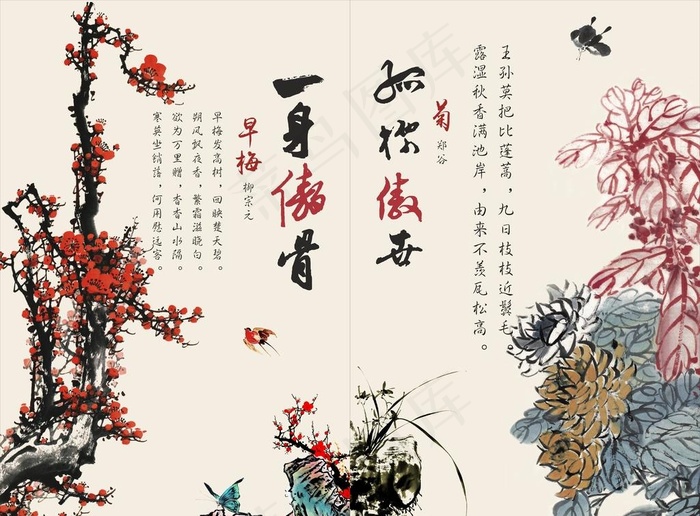 一身傲骨
早梅
柳宗元
早梅发高树，回映楚天碧。
朔风飘夜香，繁霜滋晓白。
欲为万里赠，杳杳山水隔。
寒英坐销落，何用慰远客。
孤标傲世
菊
郑谷
王孙莫把比蓬蒿，九日枝枝近鬓毛。
露湿秋香满池岸，由来不羡瓦松高。